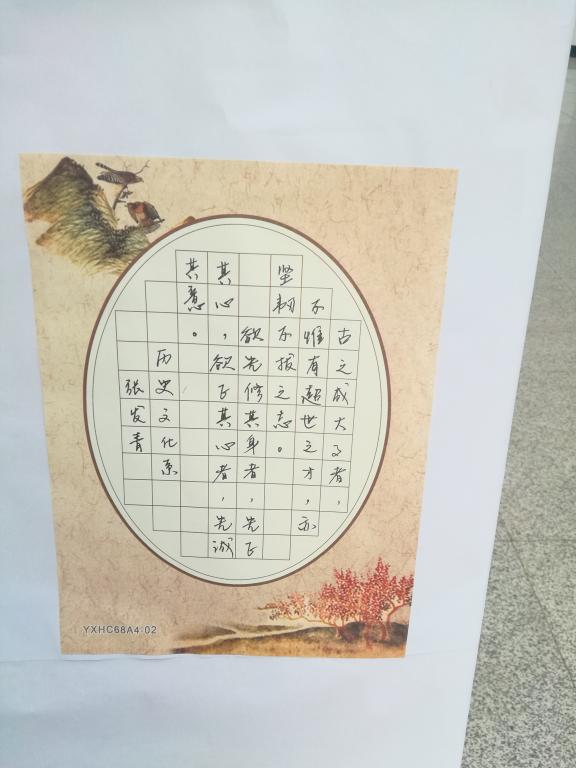 古之成大了者，
不惟有超世之才，亦
坚韧不拔之志。
欲先修其身者，先正
其心，欲正其心者，先诚
其意。
历史文化系
张发青
YXHC68A4-02